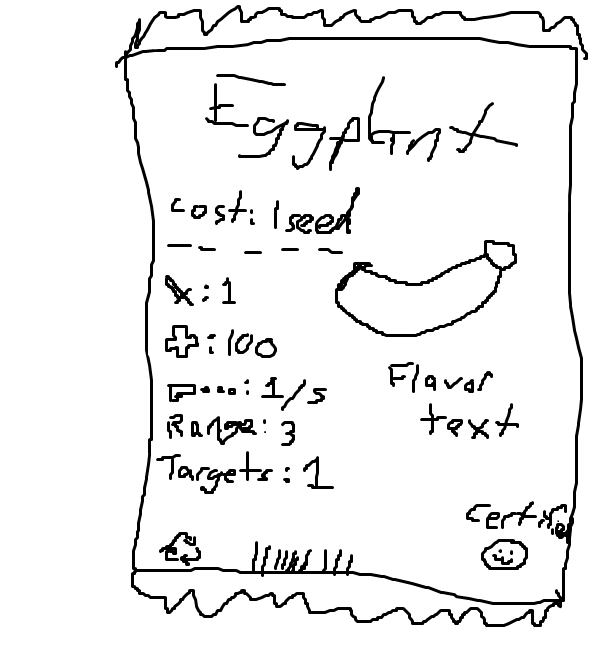 Eggplant
cost: 1 seed
: 1
: 100
: 1/s
Range: 3
Targets: 1
Flavor
text
Certified